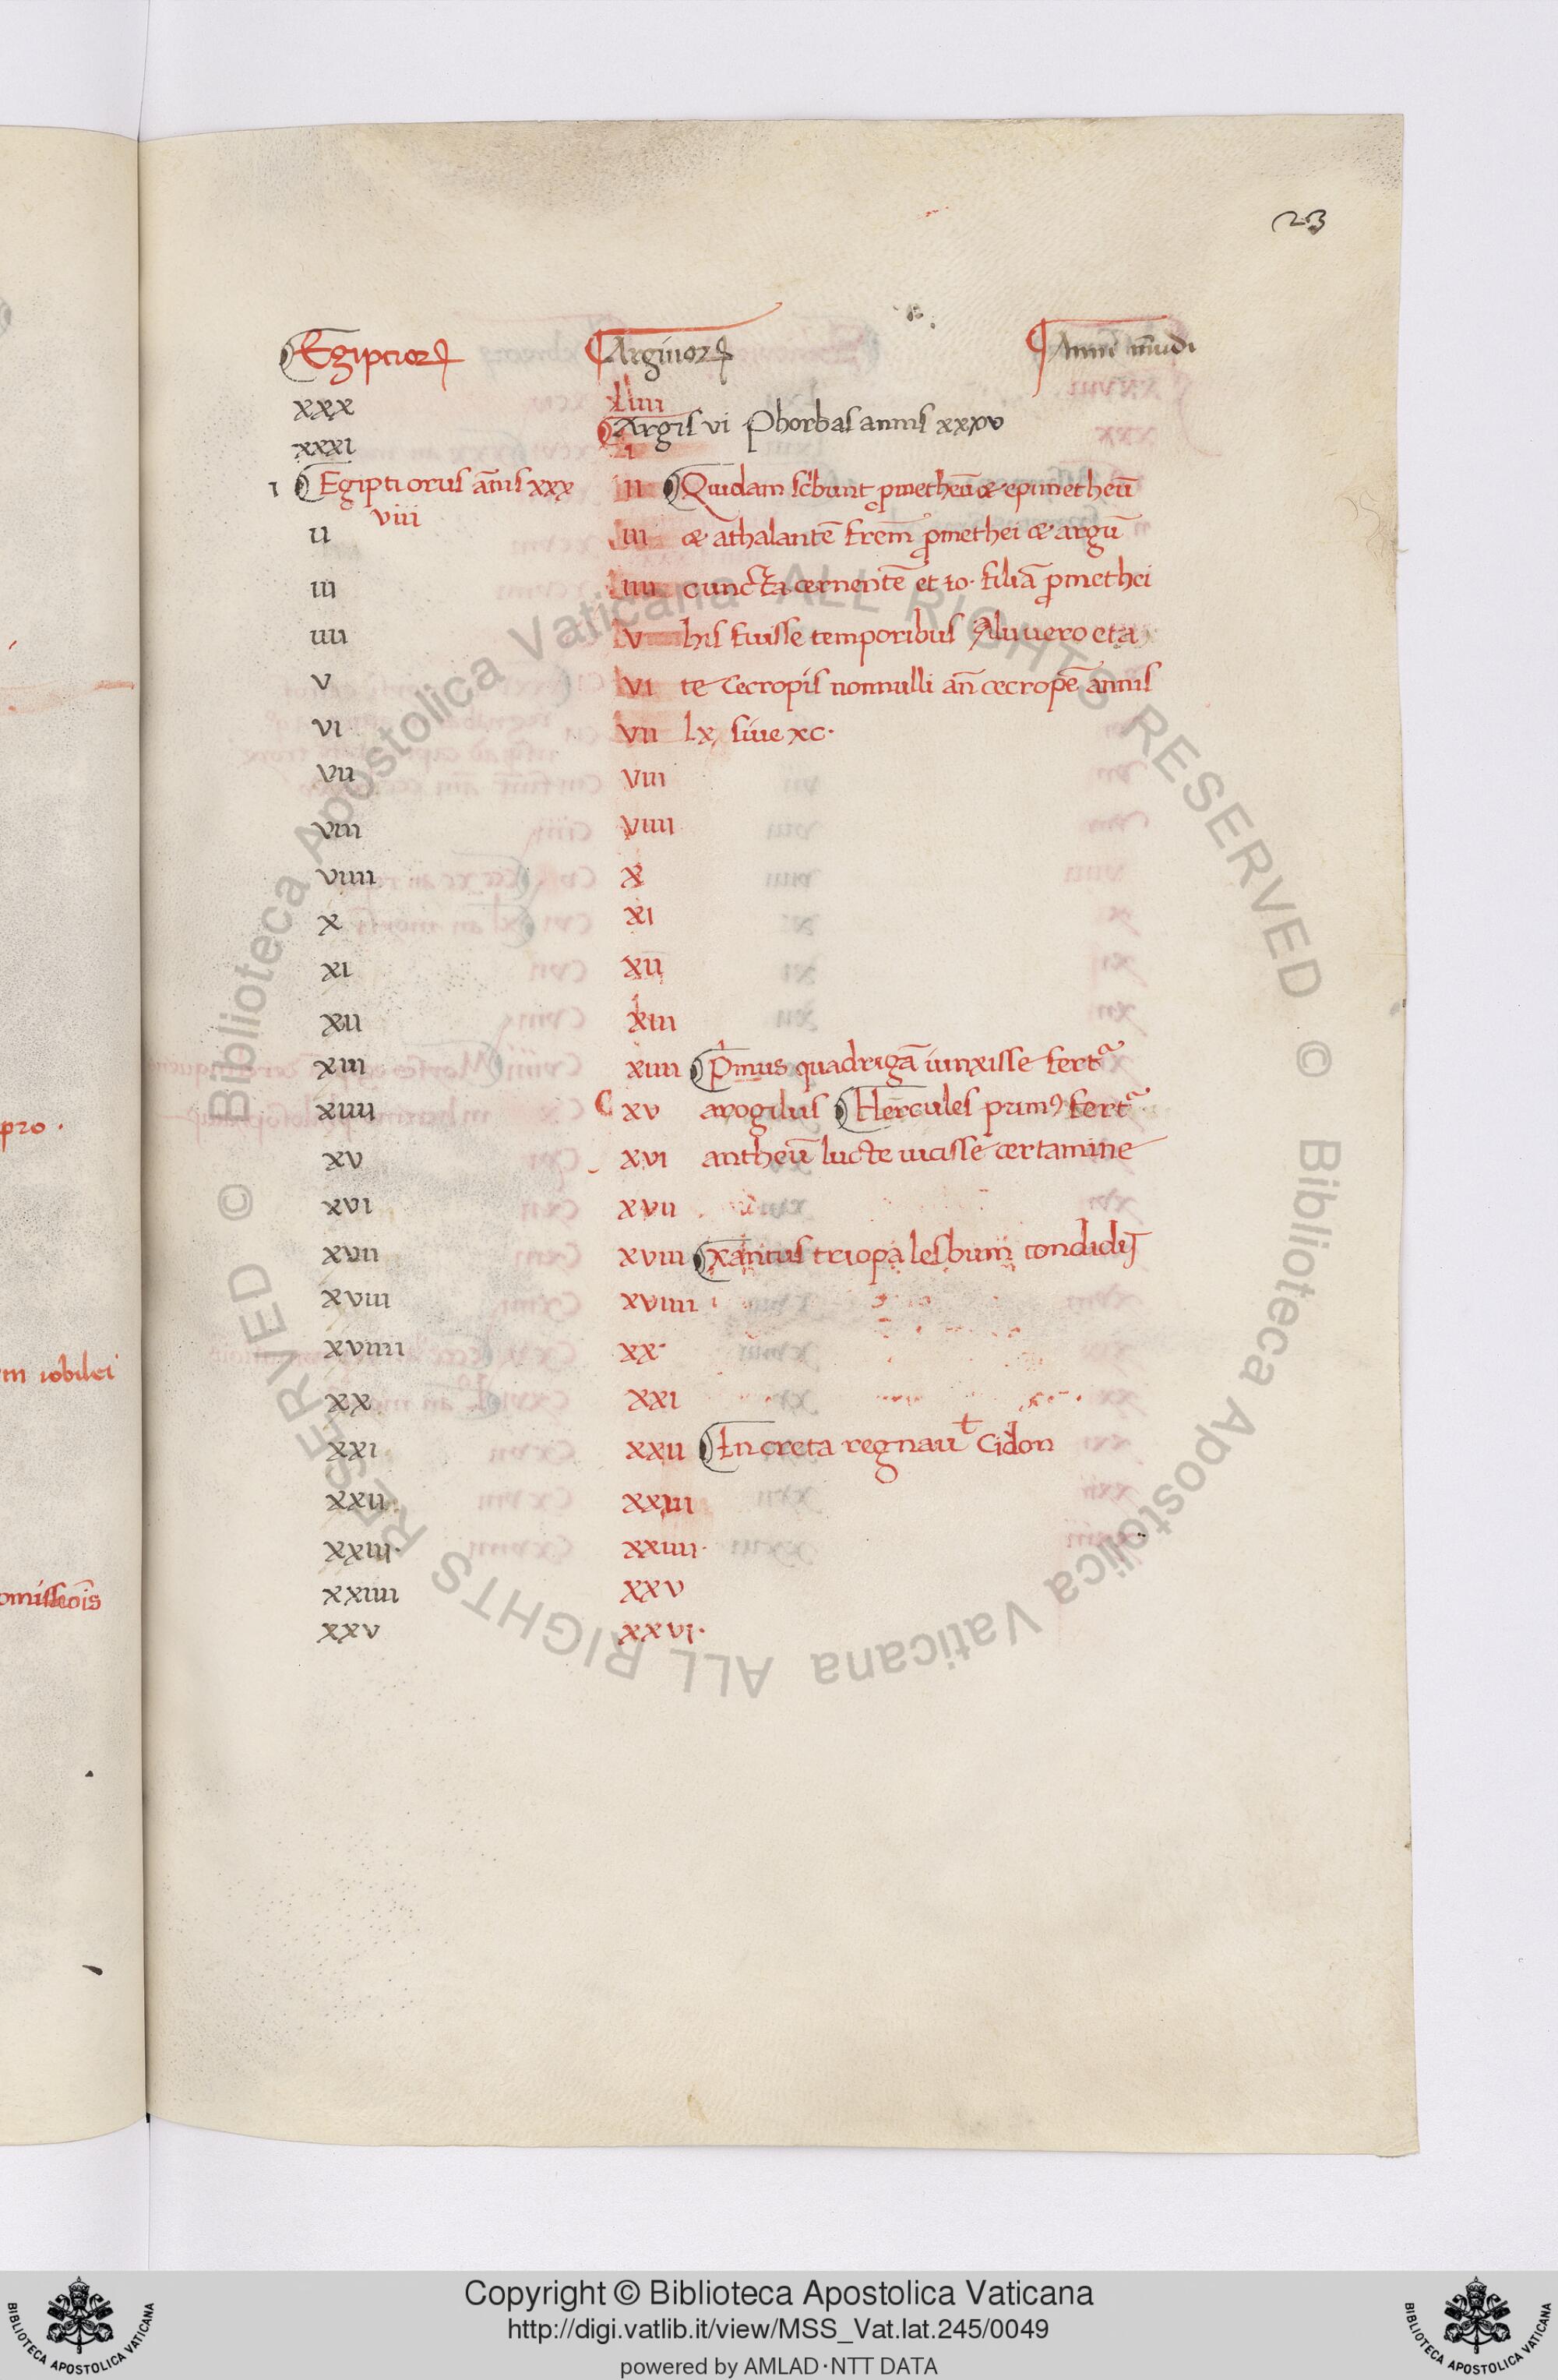 23
Egiptiorꝝ Arginorꝝ Anni mūdi
xxx xliiii
Argis vi Phorbas annis xxxv
xxxi i
i Egipti orus ānis xxx viii ii Quidam scbunt ꝓmetheū & epimetheū
ii iii & athalantē frem̄ ꝓmethei & argū
iii iiii cuncta cernentē et io. filiā ꝓmethei
iiii v his fuisse temporibus Alii vero eta
v vi te cecropis nonnulli añ cecropē annis
vi vii lx siue xc.
vii viii
viii viiii
viiii x
x xi
xi xii
xii xiii
xiii xiiii Pimus quadrigā iunxisse fert᷑
xiiii xv arogilus Hercules primꝰ fert᷑
xv xvi antheū lucte uicisse certamine
xvi xvii
xvii xviii xantus triopa lesbum condidit
xviii xviiii
xviiii xx
xx xxi
xxi xxii In creta regnauᵗ Cidon
xxii xxiii
xxiii. xxiiii.
xxiiii xxv
xxv xxvi.
pro.
m iobilei
omissiōis
© Biblioteca Apostolica Vaticana ALL RIGHTS RESERVED © Biblioteca Apostolica Vaticana ALL RIGHTS RESERVED
BIBLIOTECA APOSTOLICA VATICANA
Copyright © Biblioteca Apostolica Vaticana
http://digi.vatlib.it/view/MSS_Vat.lat.245/0049
powered by AMLAD·NTT DATA
BIBLIOTECA APOSTOLICA VATICANA